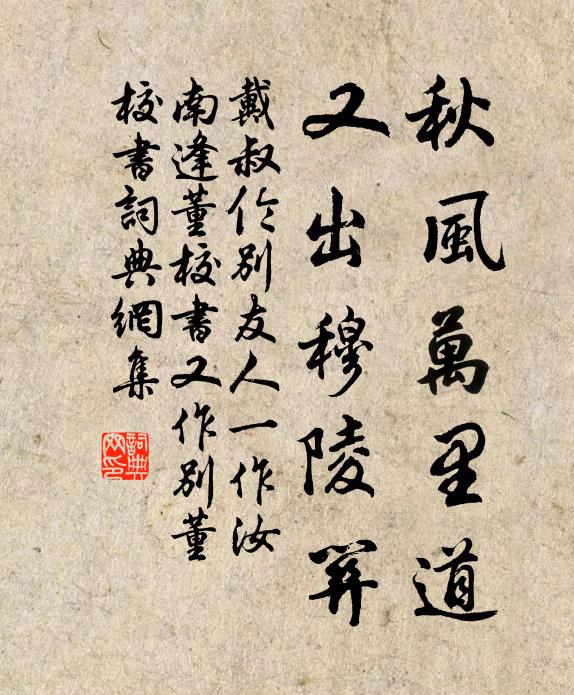 秋風萬里道
又出穆陵關
戴叔伦別友人一作汝
南逢董校書又作別董
校書詞典網集
詞典網印